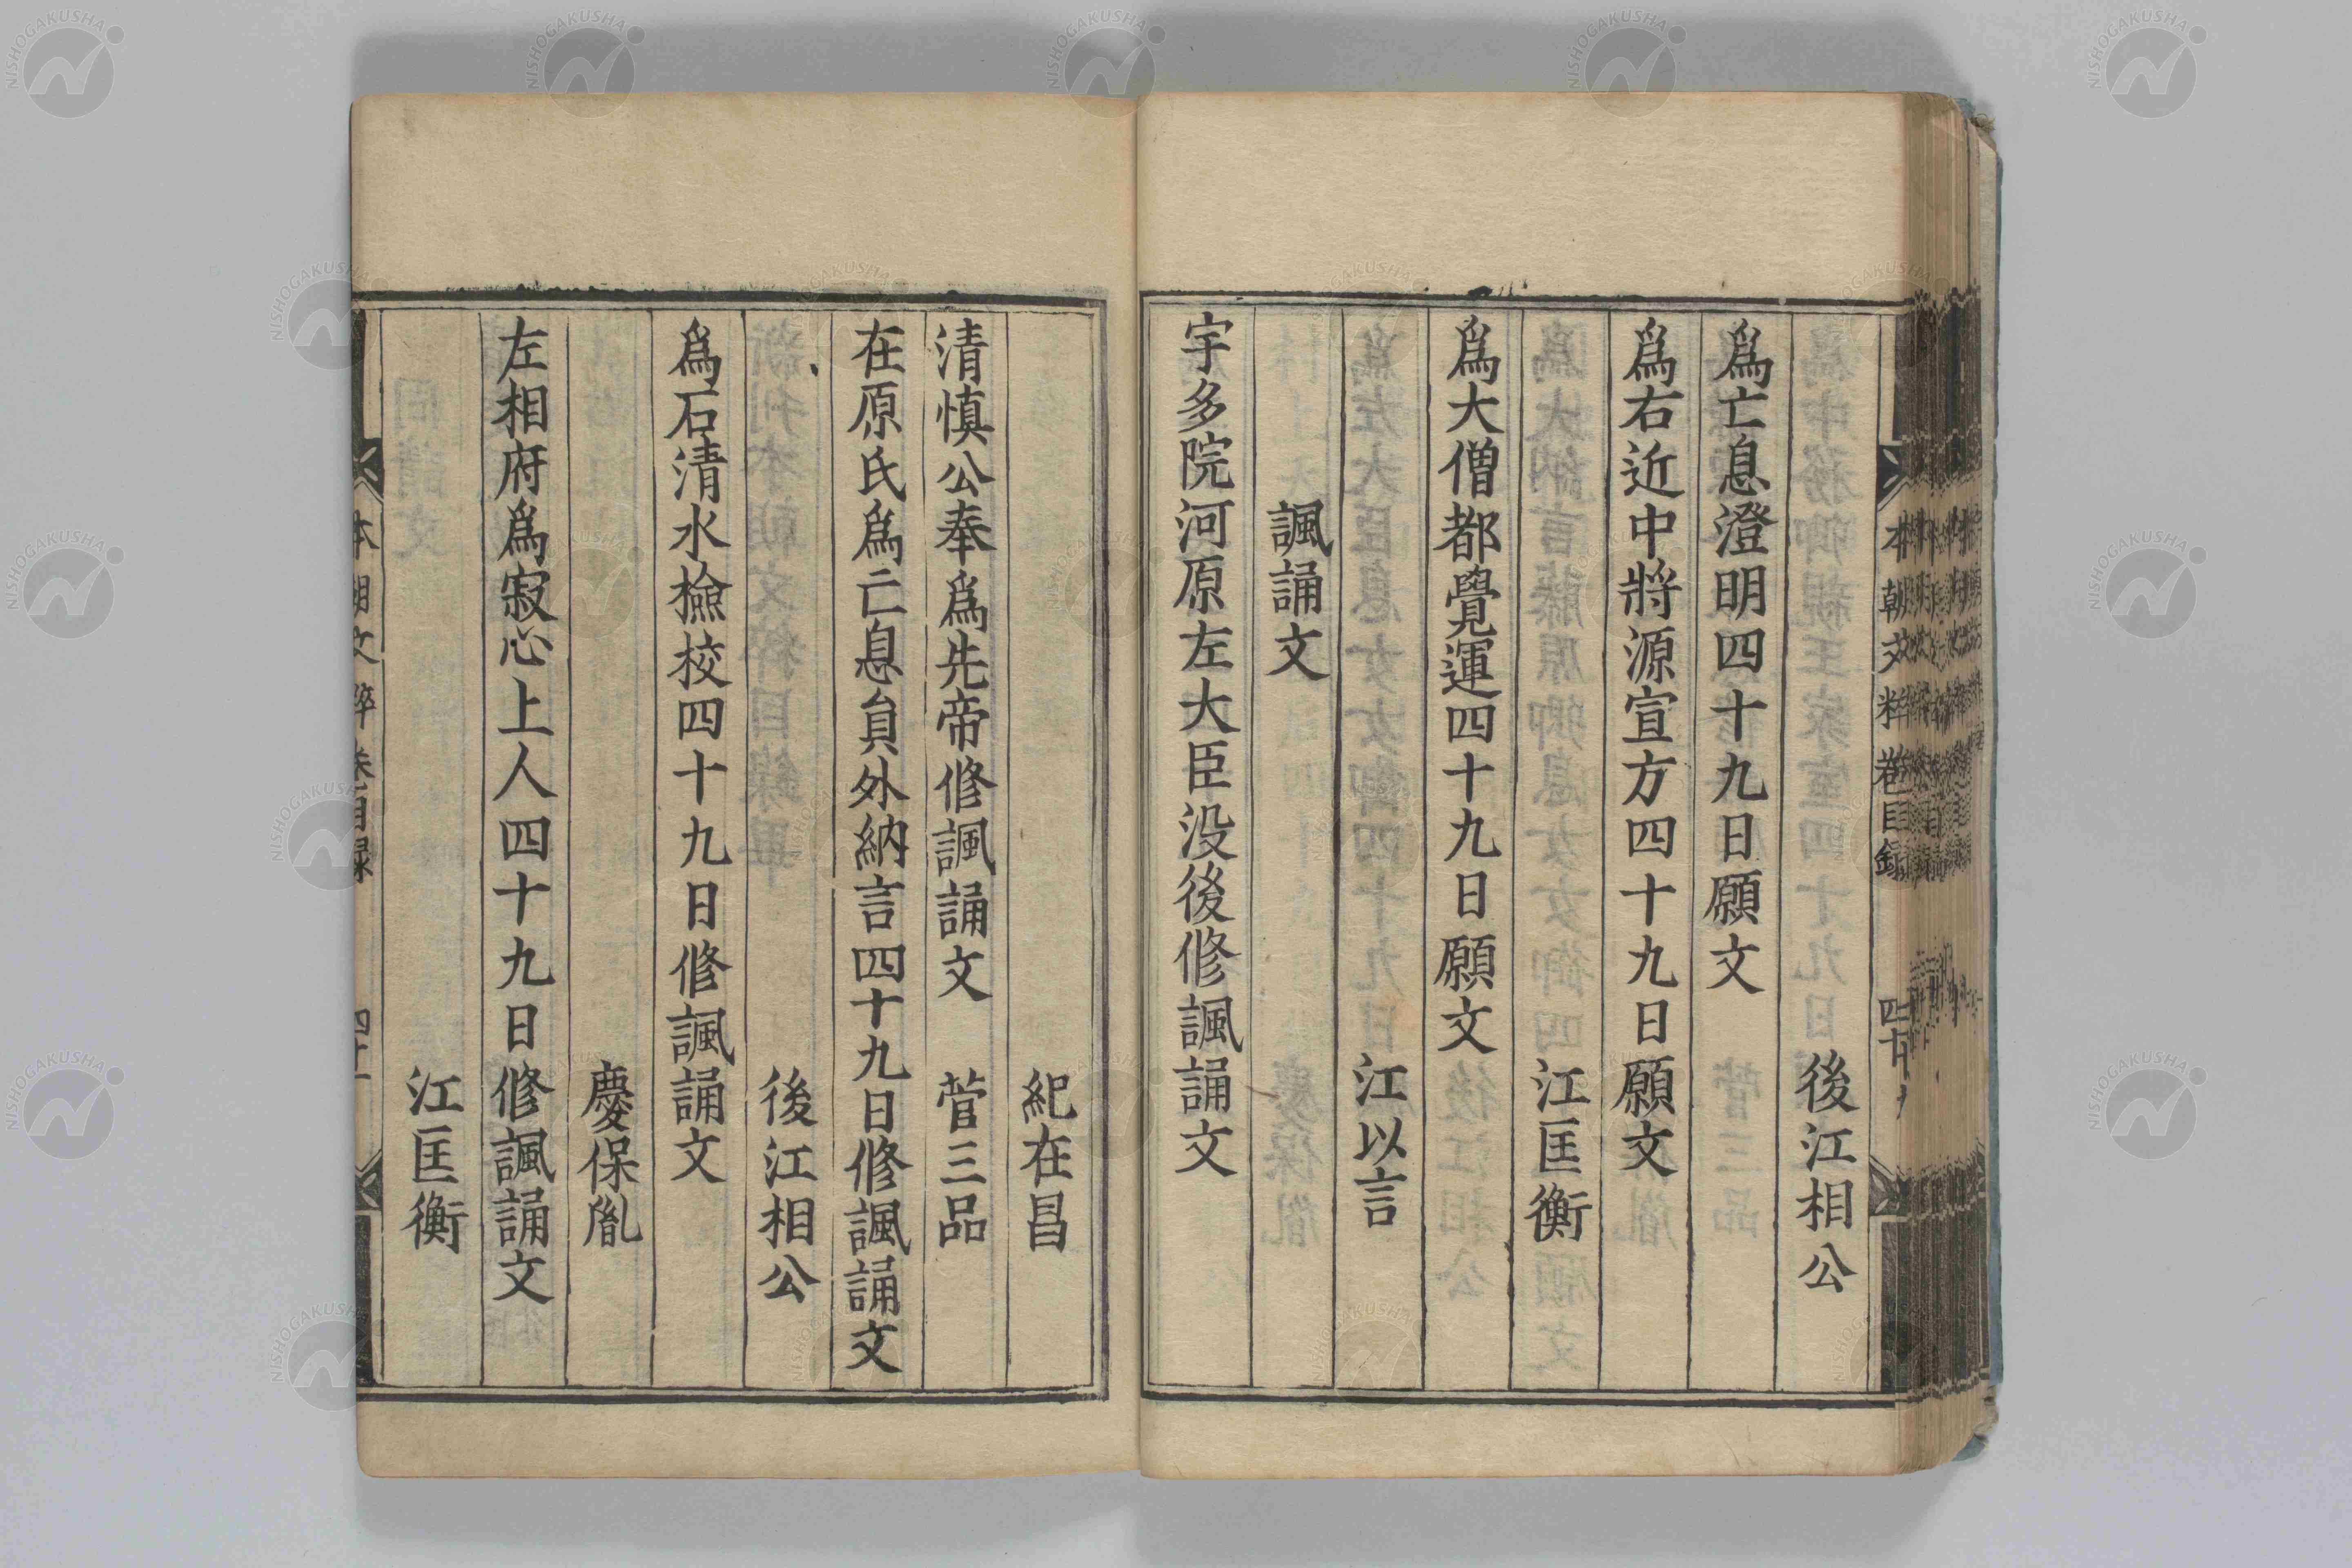 後江相公
爲亡息澄明四十九日願文
爲右近中將源宣方四十九日願文
江匡衡
爲大僧都覺運四十九日願文
江以言
諷誦文
宇多院河原左大臣没後修諷誦文
本朝文粹卷目録
四十
紀在昌
清慎公奉爲先帝修諷誦文 菅三品
在原氏爲亡息員外納言四十九日修諷誦文
後江相公
爲石清水撿校四十九日修諷誦文
慶保胤
左相府爲寂心上人四十九日修諷誦文
江匡衡
本朝文粹卷目録
NISHOGAKUSHA